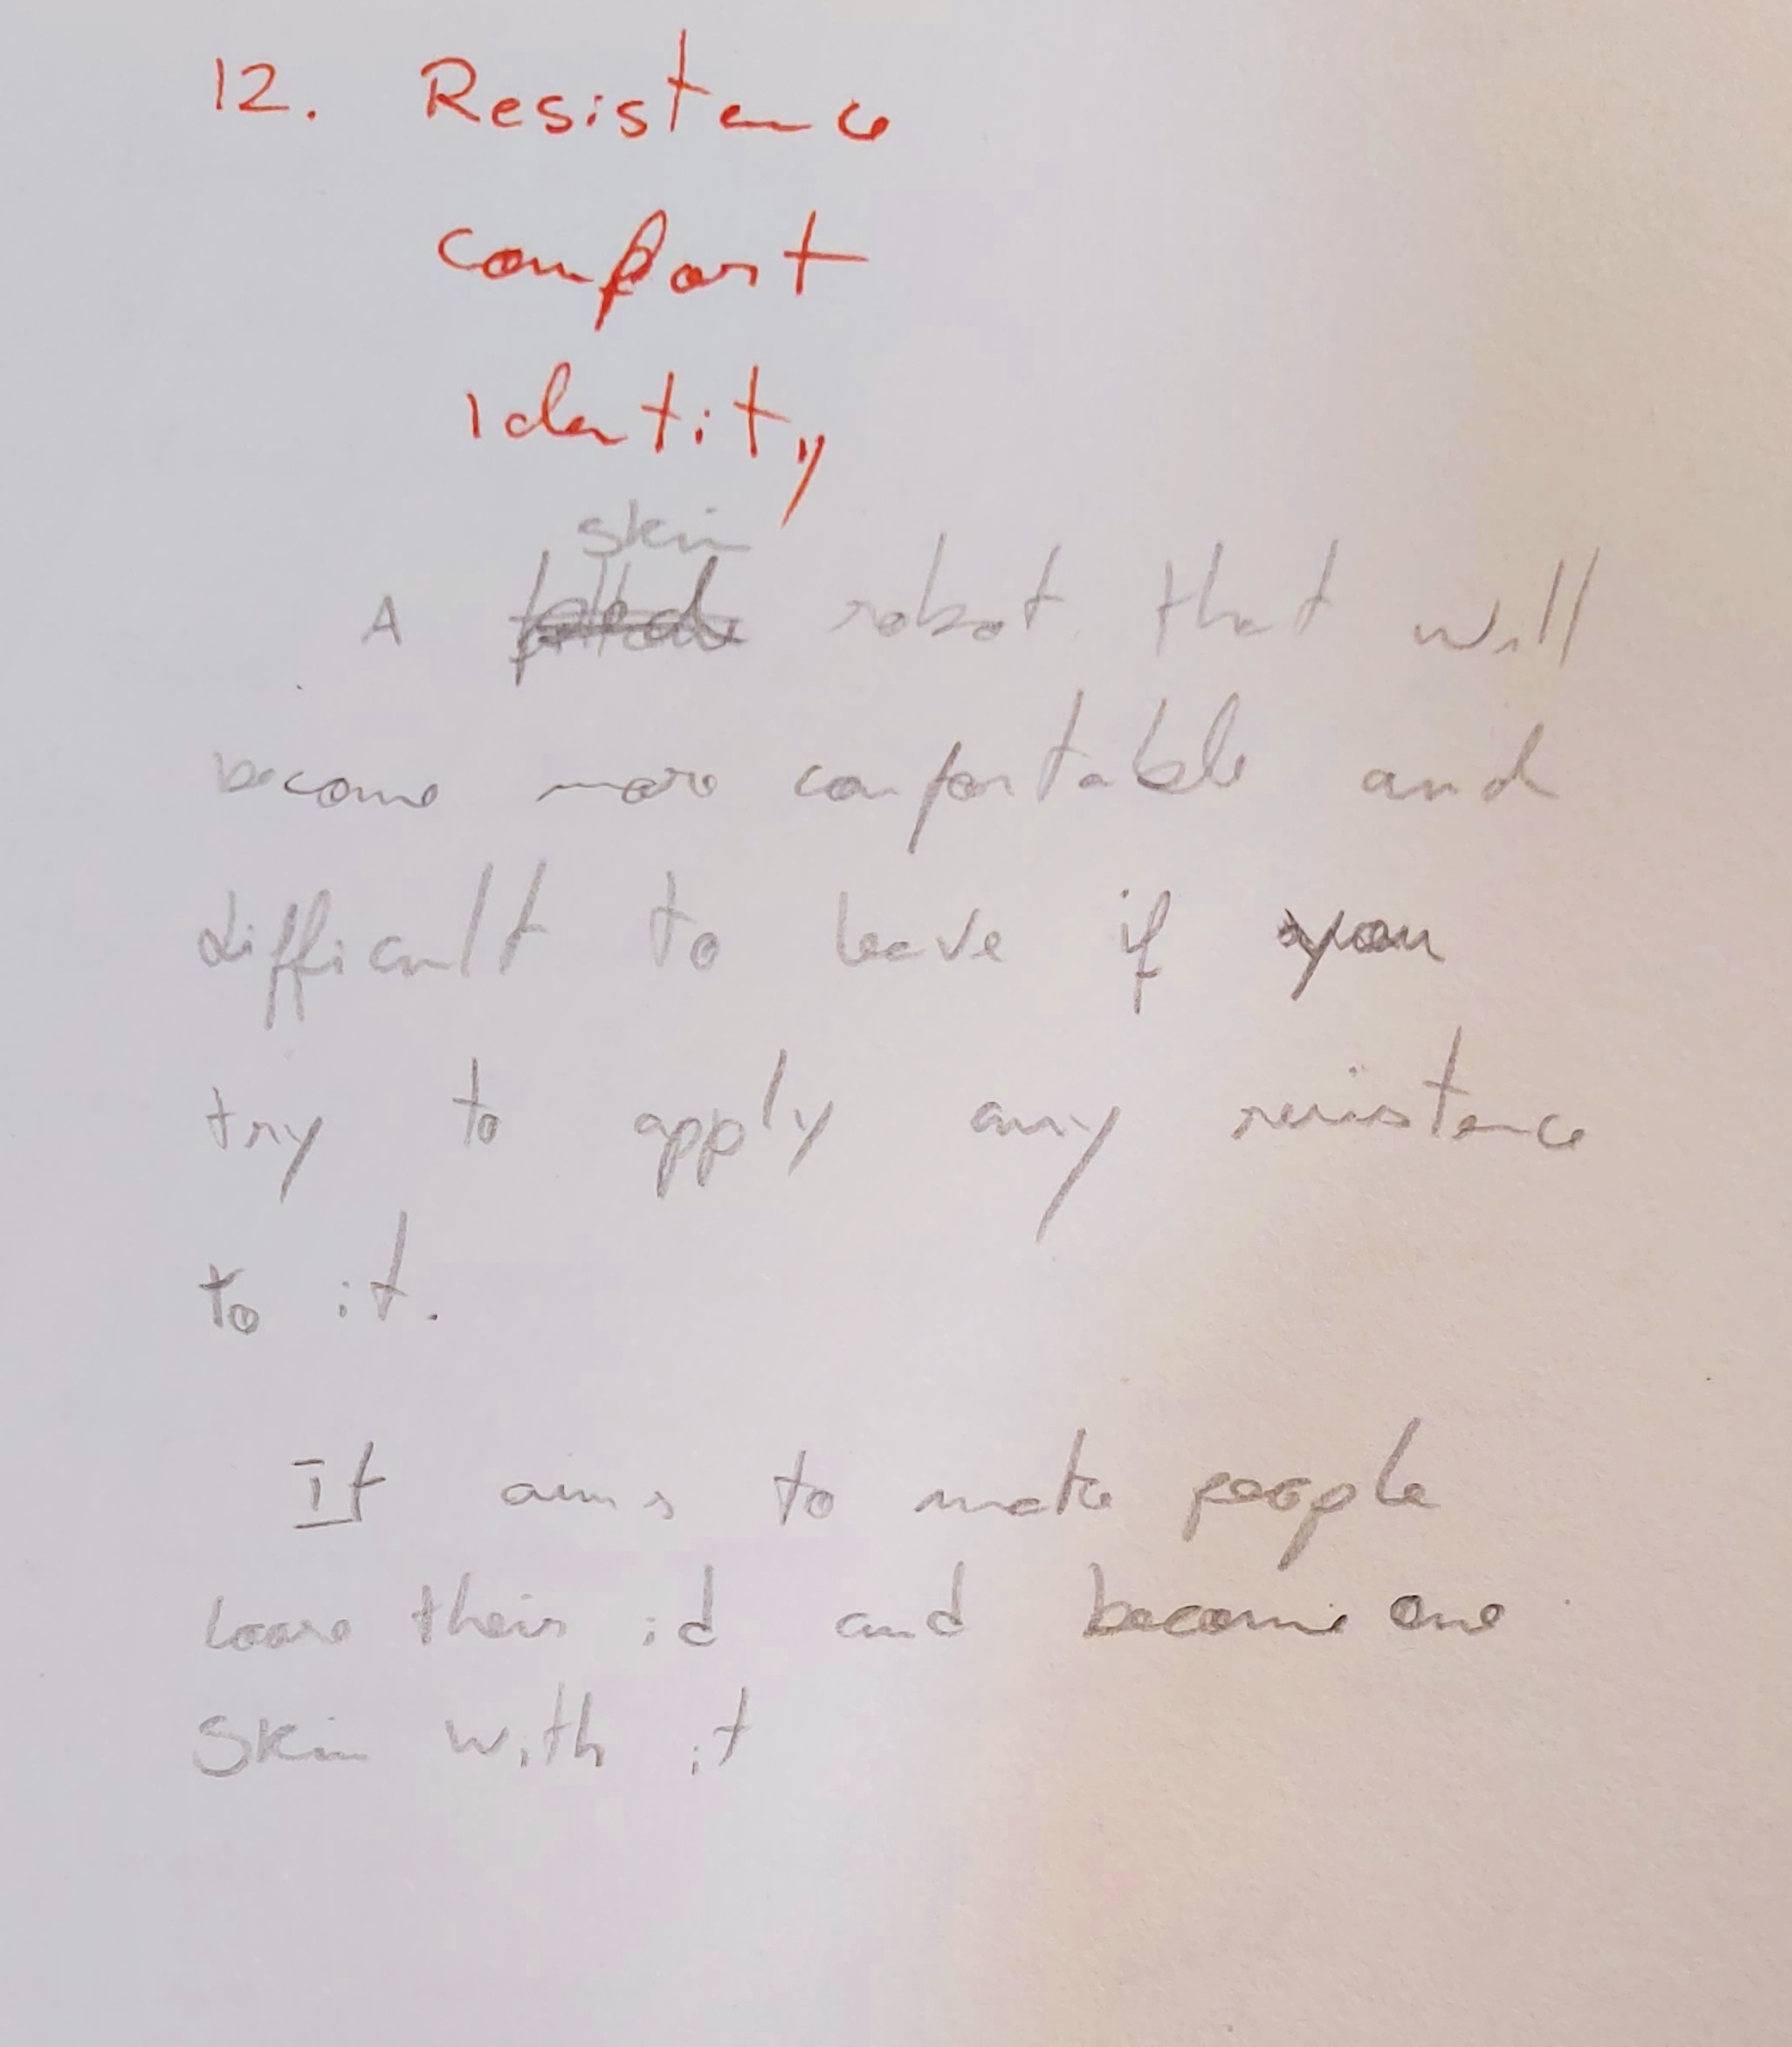 12. Resistence
comfort
Identity
skin
A robot that will
become more confortable and
difficult to leave if you
try to apply any resistence
to it.
It aims to make people
loose their id and become one
skin with it